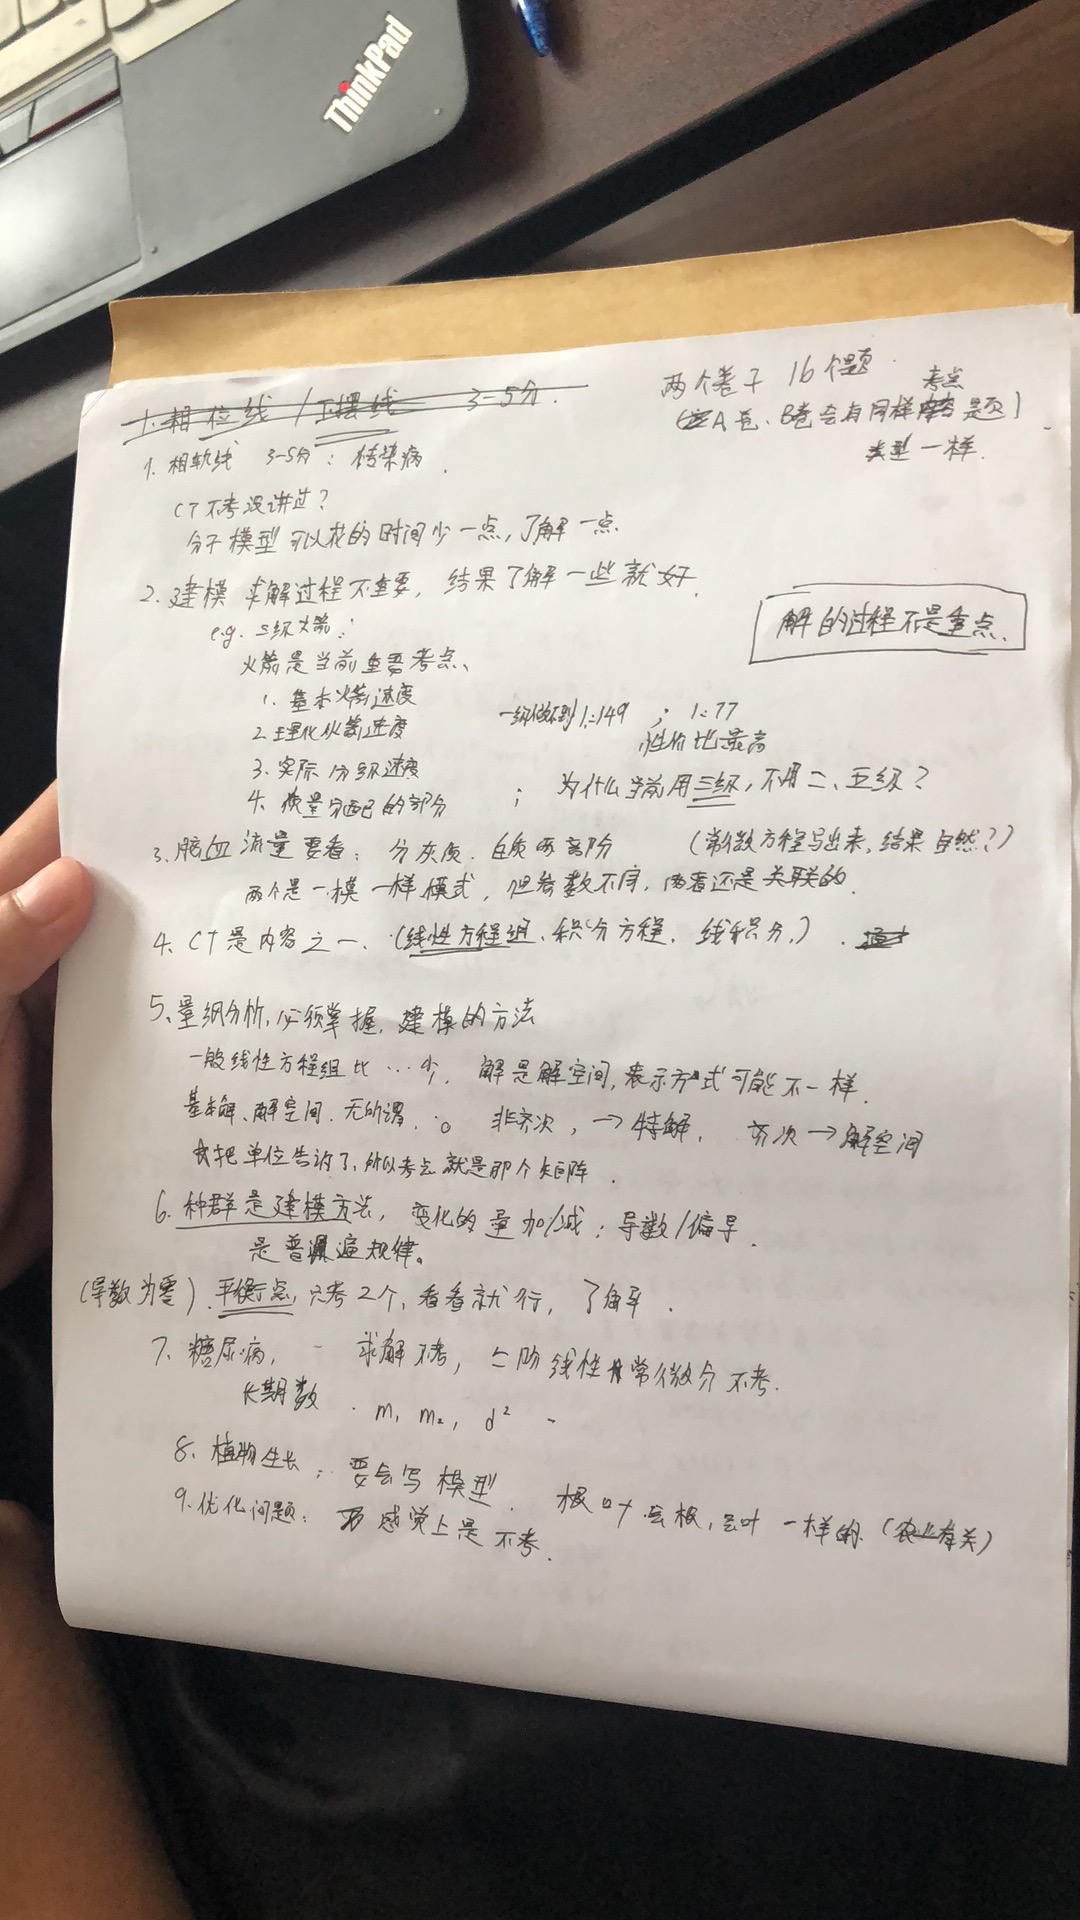 ThinkPad
两个卷子 16个题
考点
(A卷、B卷会有同样题)
类型一样.
1. 相位线 / 3-5分.
1. 相轨线 3-5分: 传染病.
CT不考没讲过?
分子模型可以花的时间少一点,了解一点
2. 建模 求解过程不重要, 结果了解一些就好.
解的过程不是重点.
e.g. 三级火箭:
火箭是当前重要考点、
1. 基本火箭速度
2. 理化火箭速度
一级做不到1:149 ; 1:77
性价比最高
3. 实际分级速度
4. 质量分配的部分 ; 为什么当前用三级,不用二、五级?
3. 脑血流量要看: 分灰质、白质两部分 (常微方程写出来,结果自然?)
两个是一模一样模式, 但参数不同, 两者还是关联的.
4. CT是内容之一、(线性方程组、积分方程、线积分,)
5、量纲分析,必须掌握, 建模的方法
一般线性方程组比…少, 解是解空间,表示方式可能不一样.
基本解、解空间、无所谓. 非齐次, → 特解. 齐次 → 解空间
把单位告诉了,所以考点就是那个矩阵.
6. 种群是建模方法, 变化的量加/减; 导数/偏导.
是普遍规律。
(导数为零) 平衡点, 只考2个, 看看就行, 了解.
7、糖尿病, 求解不考, 二阶线性常微分不考.
长期数 m₁ m₂, d²
8. 植物生长; 要会写模型. 根叶 一样的 (农业有关)
9. 优化问题: 感觉上是不考.